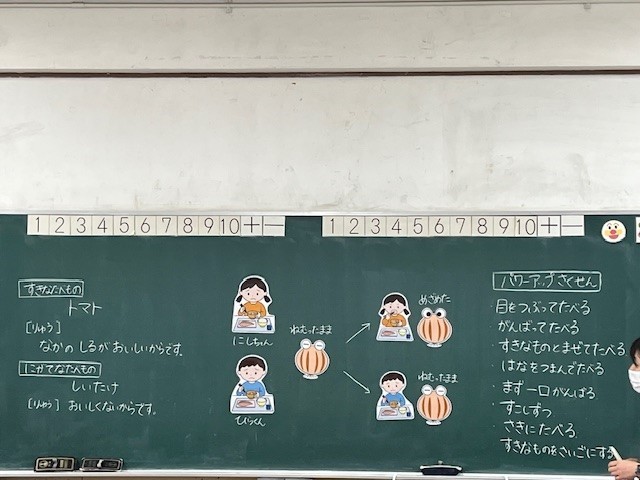 1 2 3 4 5 6 7 8 9 10 + −
1 2 3 4 5 6 7 8 9 10 + −
すきなたべもの
トマト
[りゆう]
なかのしるがおいしいからです。
にがてなたべもの
しいたけ
[りゆう] おいしくないからです。
にしちゃん
ひらくん
ねむったまま
めざめた
ねむったまま
パワーアップさくせん
・目をつぶってたべる
・がんばってたべる
・すきなものとまぜてたべる
・はなをつまんでたべる
・まず一口がんばる
・すこしずつ
・さきにたべる
・すきなものをさいごにする